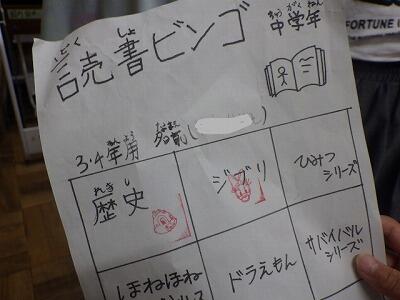 どく しょ
読書ビンゴ
ちゅう がく ねん
中学年
FORTUNE
ねん よう
3・4年用
なまえ
名前( )
れき し
歴史
ジブリ
ひみつ
シリーズ
ほねほね
ドラえもん
サバイバル
シリーズ